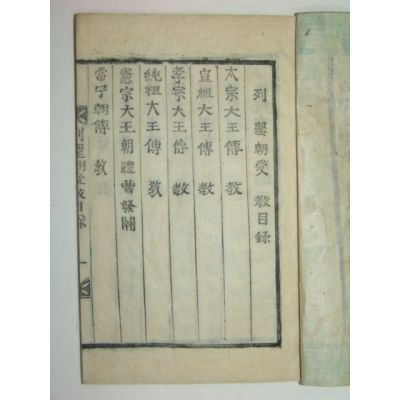 列聖朝受 教目錄
太宗大王傳 教
宣祖大王傳 教
孝宗大王傳 教
純祖大王傳 教
憲宗大王朝禮曹發關
當宁朝傳 教
列聖朝受教目錄 一